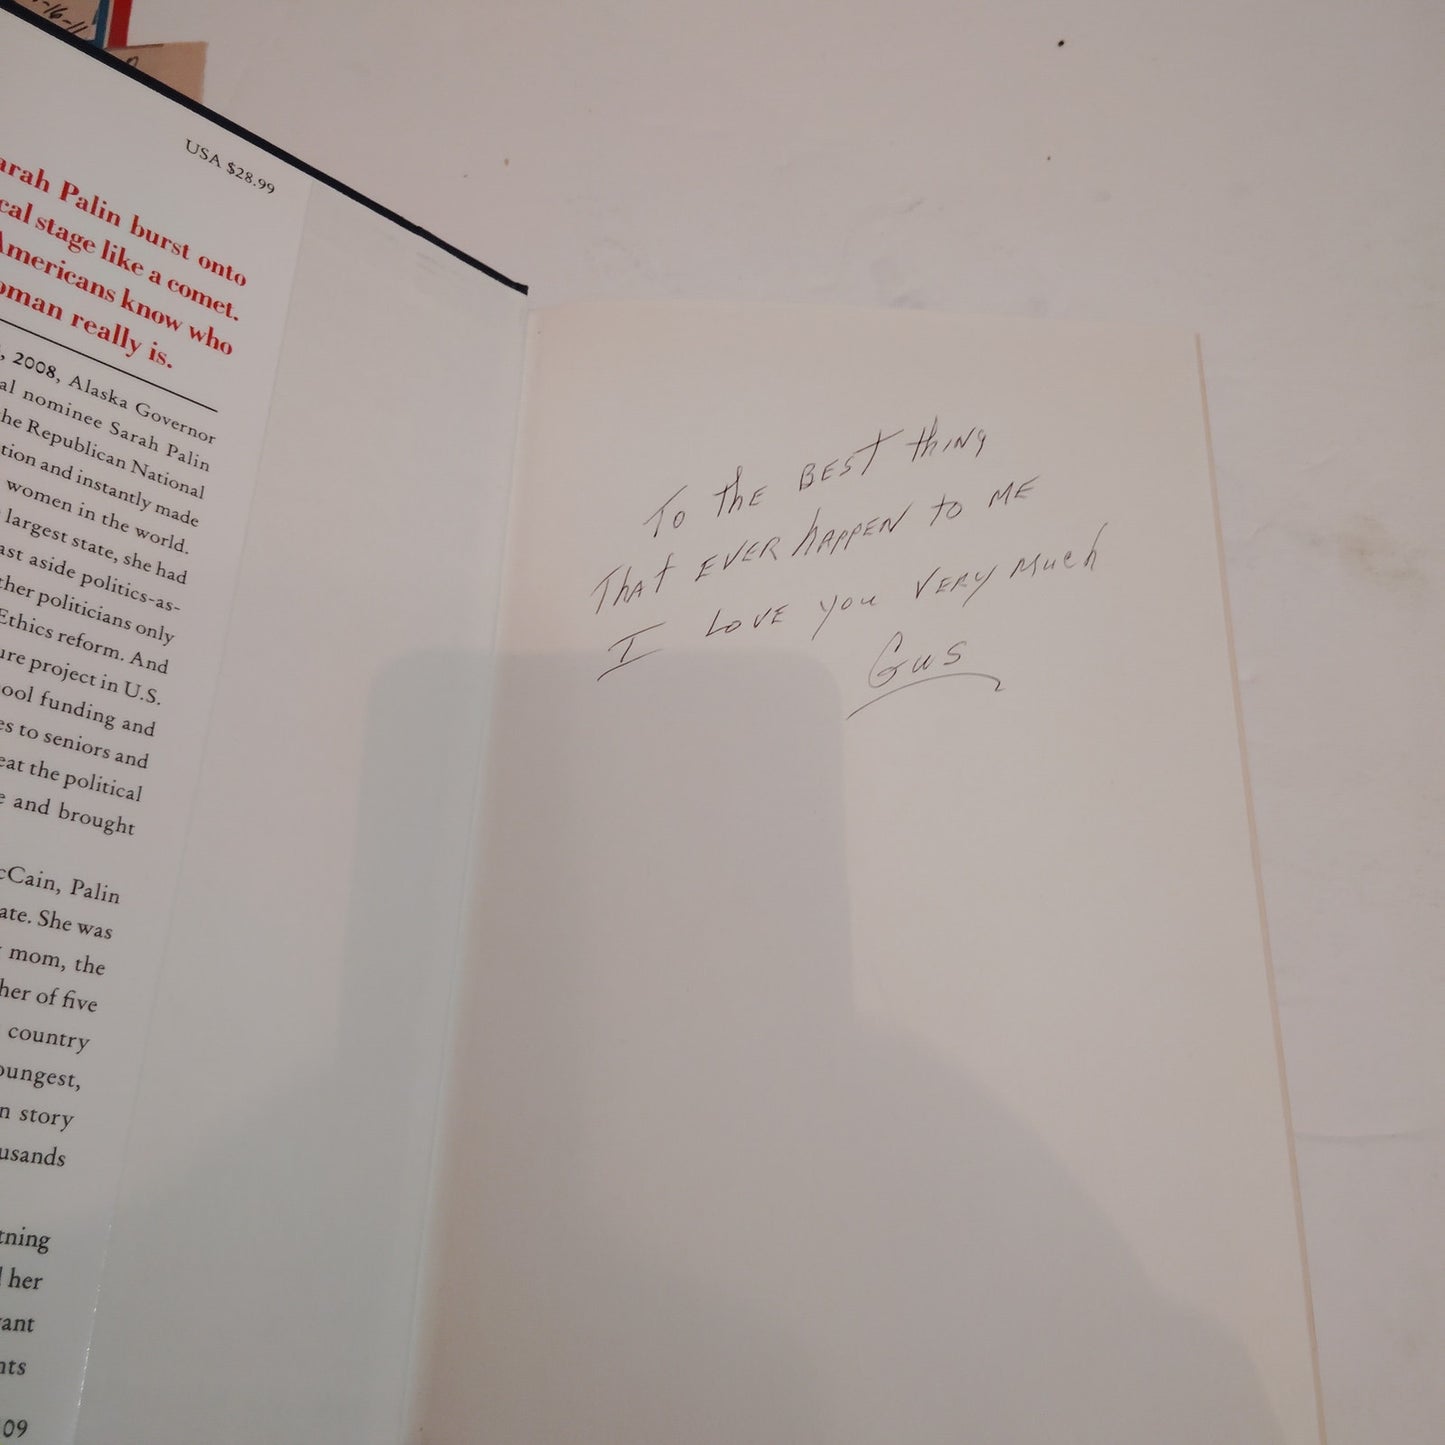 -16-11
USA $28.99
arah Palin burst onto
cal stage like a comet.
Americans know who
oman really is.
, 2008, Alaska Governor
al nominee Sarah Palin
he Republican National
tion and instantly made
women in the world.
largest state, she had
ast aside politics-as-
ther politicians only
Ethics reform. And
ure project in U.S.
ool funding and
es to seniors and
eat the political
e and brought
cCain, Palin
ate. She was
mom, the
her of five
country
oungest,
n story
usands
tning
her
vant
nts
09
To the BEST thing
That EVER happen to ME
I LOVE you VERY much
Gus